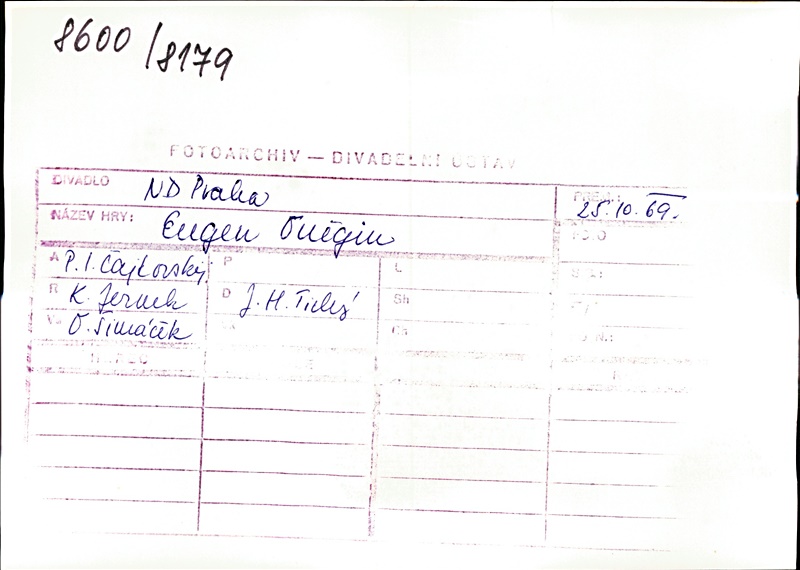 8600/8179
FOTOARCHIV — DIVADELNÍ ÚSTAV
DIVADLO ND Praha
25.10.69.
NÁZEV HRY: Eugen Oněgin
A P. I. Čajkovský P L
R K. Jernek D J. H. Tichý Sh
O. Šimáček